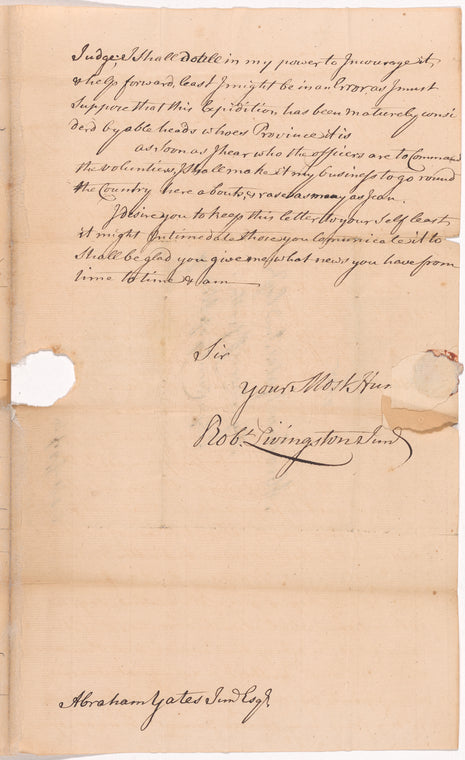 Judge; I Shall do all in my power to Incourage it,
& help forward, least I might be in an Error as I must
Suppose that this Expidition has been maturely consi
derd by able heads whoes Province it is
as soon as I hear who the officers are to Command
the volentiers, I Shall make it my business to go round
the Country here abouts, & rase as many as I can.
I desire you to keep this letter to your Self least
it might Intimedate those you Comunicate it to
Shall be glad you give me, what news you have from
time to time & am
Sir
Your Most Hum
Robt. Livingston Junr
Abraham Yates Junr Esqr